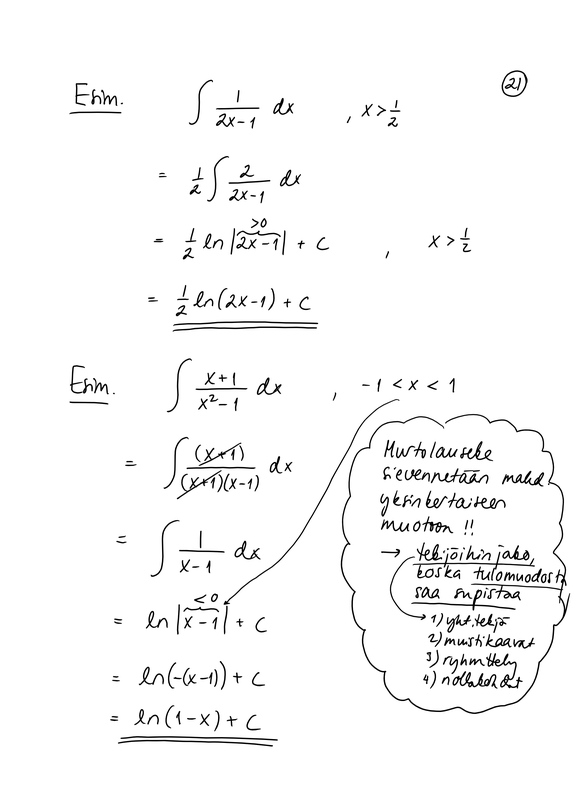 21
Esim. ∫ 1/(2x-1) dx , x > 1/2
= 1/2 ∫ 2/(2x-1) dx
>0
= 1/2 ln |2x-1| + C , x > 1/2
= 1/2 ln(2x-1) + C
Esim. ∫ (x+1)/(x²-1) dx , -1 < x < 1
= ∫ (x+1)/((x+1)(x-1)) dx
= ∫ 1/(x-1) dx
<0
= ln |x-1| + C
= ln(-(x-1)) + C
= ln(1-x) + C
Murtolauseke
sievennetään mahd.
yksinkertaiseen
muotoon !!
→ tekijöihin jako,
koska tulomuodosta
saa supistaa
→ 1) yht. tekijä
2) muistikaavat
3) ryhmittely
4) nollakohdat